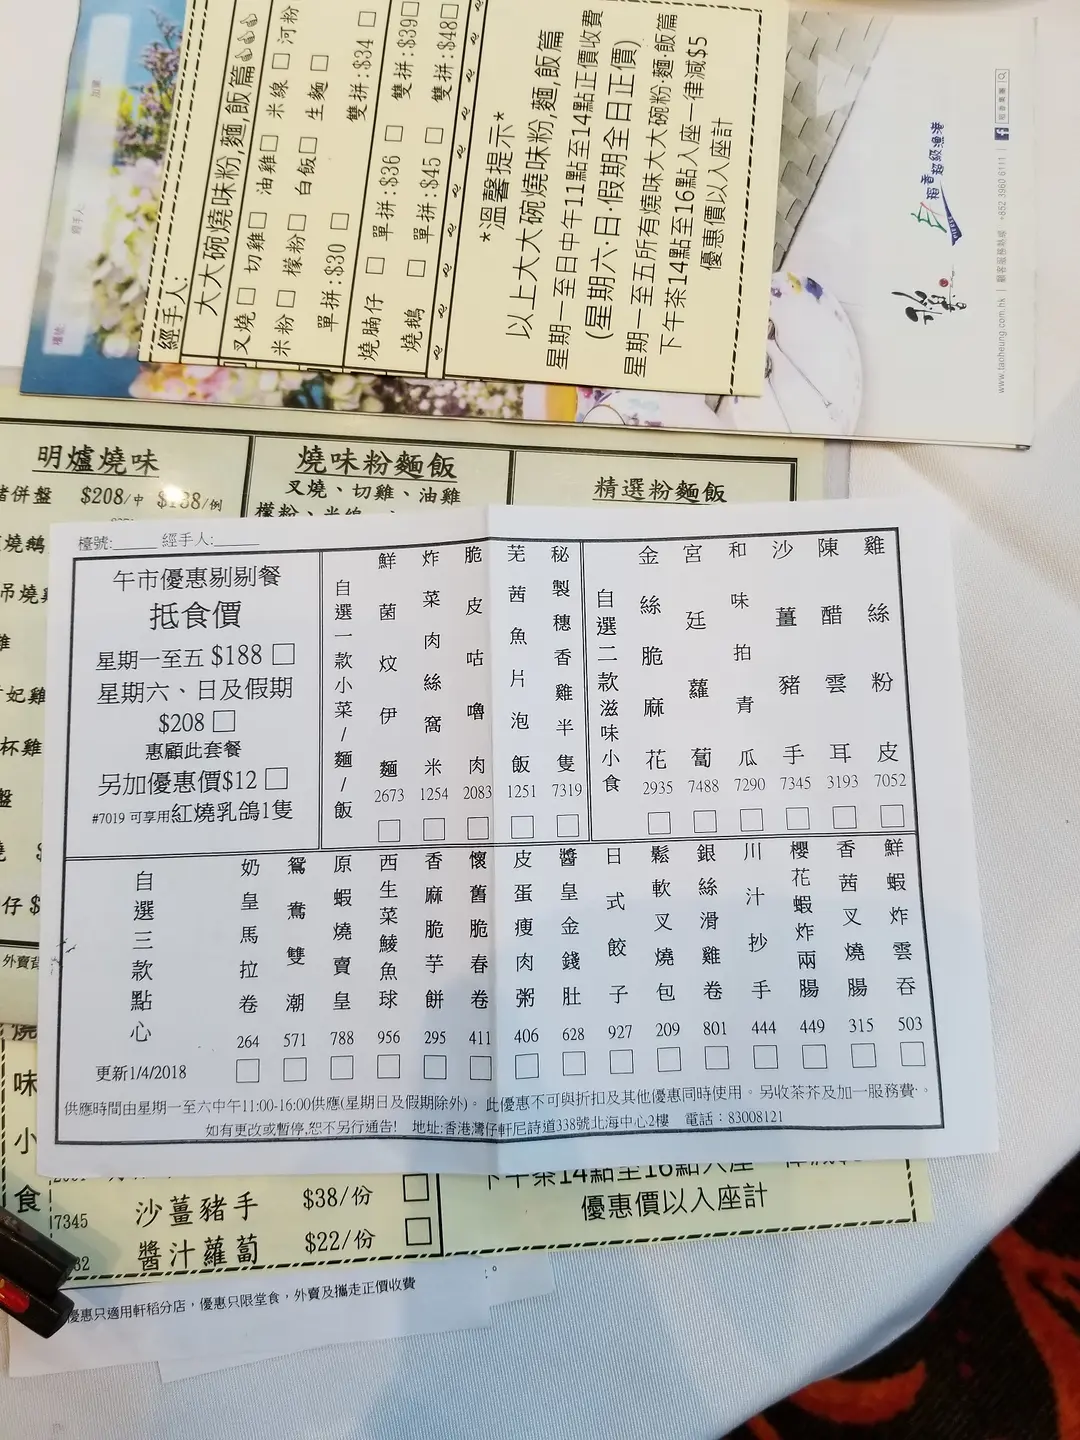 經手人:
大大碗燒味粉,麵,飯篇
叉燒□ 切雞□ 油雞□ 米線□ 河粉
米粉□ 檬粉□ 白飯□ 生麵□
單拼:$30 □ 雙拼:$34 □
燒腩仔 □ 單拼:$36 □ 雙拼:$39□
燒鵝 □ 單拼:$45 □ 雙拼:$48□
*溫馨提示*
以上大大碗燒味粉,麵,飯篇
星期一至日中午11點至14點正價收費
(星期六·日·假期全日正價)
星期一至五所有燒味大大碗粉·麵·飯篇
下午茶14點至16點入座一律減$5
優惠價以入座計
稻香超級漁港
稻香集團
www.taoheung.com.hk | 顧客服務熱線 +852 3960 6111
明爐燒味
併盤 $208/中
/例
燒味粉麵飯
叉燒、切雞、油雞
檬粉、米線
精選粉麵飯
檯號:_____ 經手人:_____
午市優惠剔剔餐
抵食價
星期一至五 $188 □
星期六、日及假期
$208 □
惠顧此套餐
另加優惠價$12 □
#7019 可享用紅燒乳鴿1隻
自選一款小菜/麵/飯
鮮菌炆伊麵 2673 □
炸菜肉絲窩米 1254 □
脆皮咕嚕肉 2083 □
芫茜魚片泡飯 1251 □
秘製穗香雞半隻 7319 □
自選二款滋味小食
金絲脆麻花 2935 □
宮廷蘿蔔 7488 □
和味拍青瓜 7290 □
沙薑豬手 7345 □
陳醋雲耳 3193 □
雞絲粉皮 7052 □
自選三款點心
更新1/4/2018
奶皇馬拉卷 264 □
鴛鴦雙潮 571 □
原蝦燒賣皇 788 □
西生菜鯪魚球 956 □
香麻脆芋餅 295 □
懷舊脆春卷 411 □
皮蛋瘦肉粥 406 □
醬皇金錢肚 628 □
日式餃子 927 □
鬆軟叉燒包 209 □
銀絲滑雞卷 801 □
川汁抄手 444 □
櫻花蝦炸兩腸 449 □
香茜叉燒腸 315 □
鮮蝦炸雲吞 503 □
供應時間由星期一至六中午11:00-16:00供應(星期日及假期除外)。此優惠不可與折扣及其他優惠同時使用。另收茶芥及加一服務費·。
如有更改或暫停,恕不另行通告! 地址:香港灣仔軒尼詩道338號北海中心2樓 電話:83008121
味小食
7345 沙薑豬手 $38/份 □
醬汁蘿蔔 $22/份 □
下午茶14點至16點入座一律減
優惠價以入座計
優惠只適用軒稻分店,優惠只限堂食,外賣及攜走正價收費